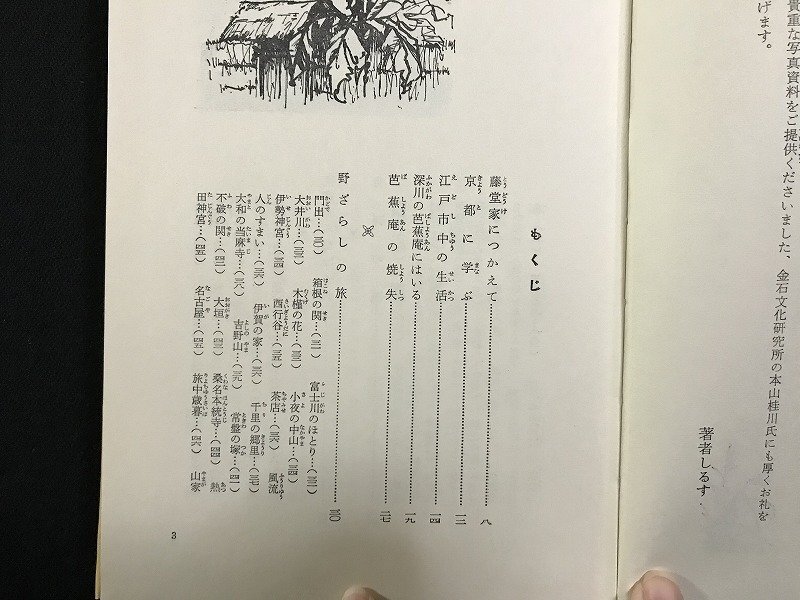 貴重な写真資料をご提供くださいました、金石文化研究所の本山桂川氏にも厚くお礼を
げます。
著者しるす
もくじ
藤堂家につかえて……八
京都に学ぶ……一二
江戸市中の生活……一四
深川の芭蕉庵にはいる……一九
芭蕉庵の焼失……二七
野ざらしの旅……三〇
門出…(三〇) 箱根の関…(三一) 富士川のほとり…(三二)
大井川…(三三) 木槿の花…(三三) 小夜の中山…(三四)
伊勢神宮…(三四) 西行谷…(三五) 茶店…(三六) 風流
人のすまい…(三六) 伊賀の家…(三六) 千里の郷里…(三七)
大和の当麻寺…(三八) 吉野山…(三九) 常盤の塚…(四一)
不破の関…(四二) 大垣…(四三) 桑名本統寺…(四四) 熱
田神宮…(四五) 名古屋…(四五) 旅中歳暮…(四六) 山家
3